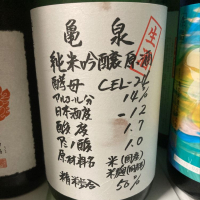 亀泉
生
純米吟醸原酒
酵母 CEL-24
アルコール分 14%
日本酒度 -12
酸度 1.7
アミノ酸 1.0
原材料名 米(国産)
米麹(国産米)
精米歩合 50%